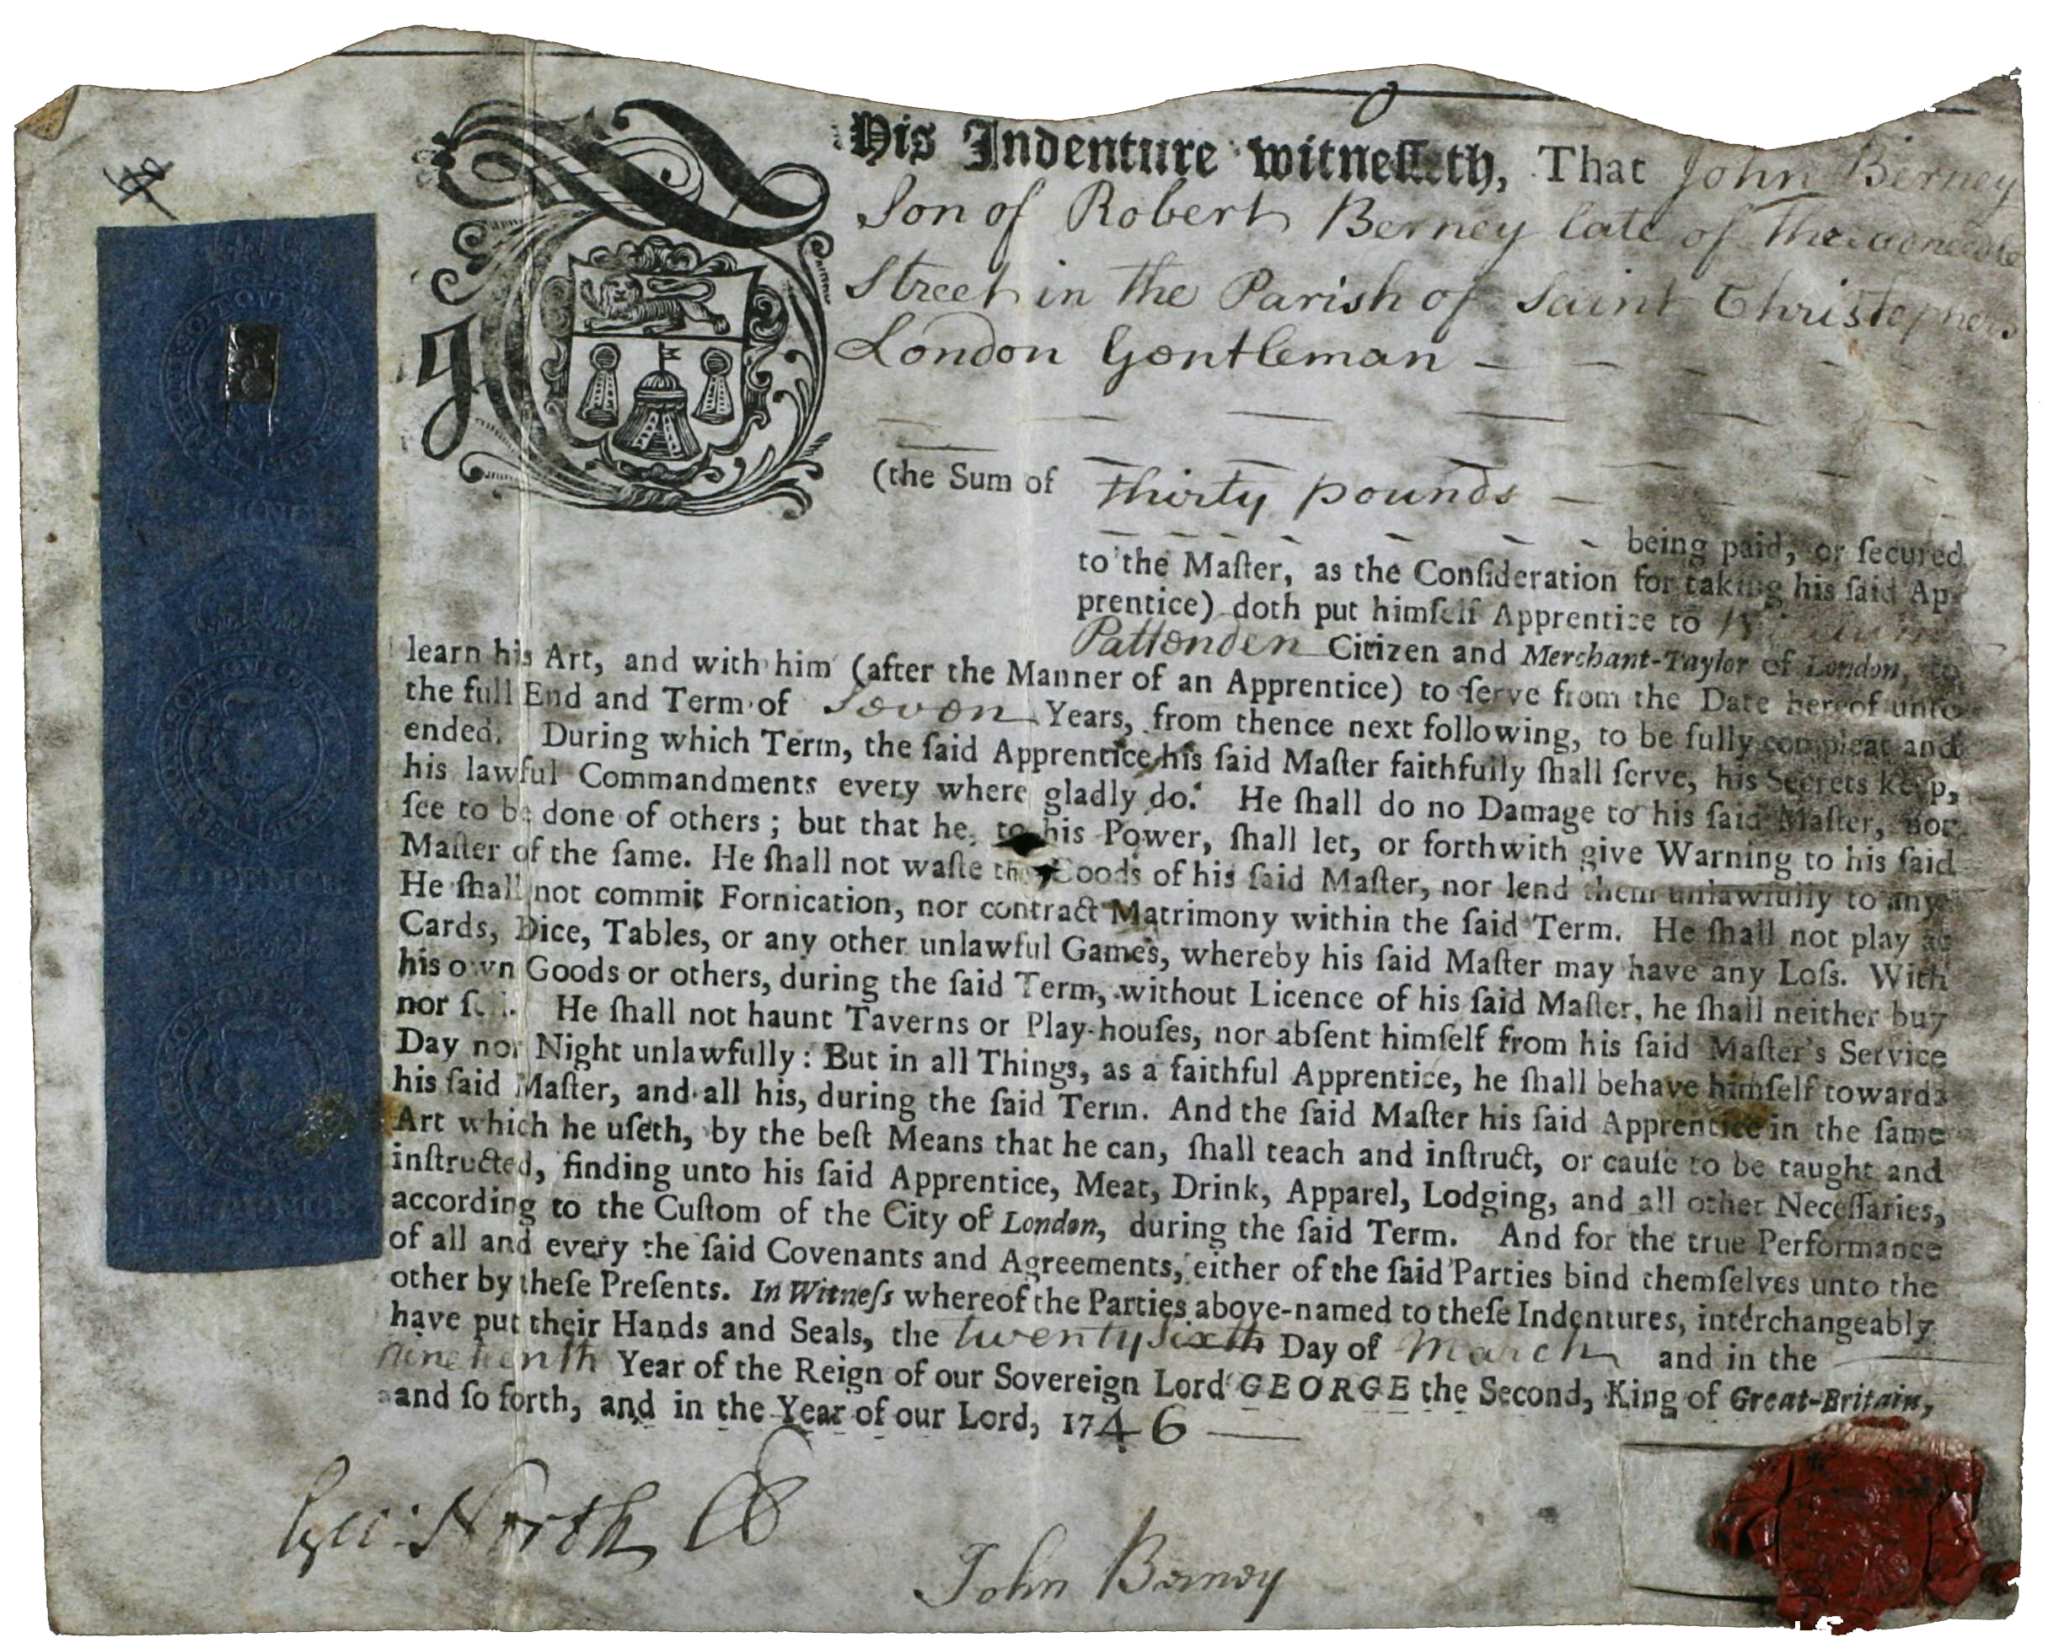 This Indenture witnesseth, That John Berney
Son of Robert Berney late of Threadneedle
Street in the Parish of Saint Christophers
London Gentleman
(the Sum of thirty pounds
being paid, or ſecured
to the Maſter, as the Conſideration for taking his ſaid Ap-
prentice) doth put himſelf Apprentice to
Pattenden Citizen and Merchant-Taylor of London, to
learn his Art, and with him (after the Manner of an Apprentice) to ſerve from the Date hereof unto
the full End and Term of Seven Years, from thence next following, to be fully compleat and
ended. During which Term, the ſaid Apprentice his ſaid Maſter faithfully ſhall ſerve, his Secrets keep,
his lawful Commandments every where gladly do. He ſhall do no Damage to his ſaid Maſter, nor
ſee to be done of others; but that he, to his Power, ſhall let, or forthwith give Warning to his ſaid
Maſter of the ſame. He ſhall not waſte the Goods of his ſaid Maſter, nor lend them unlawfully to any
He ſhall not commit Fornication, nor contract Matrimony within the ſaid Term. He ſhall not play at
Cards, Dice, Tables, or any other unlawful Games, whereby his ſaid Maſter may have any Loſs. With
his own Goods or others, during the ſaid Term, without Licence of his ſaid Maſter, he ſhall neither buy
nor ſell. He ſhall not haunt Taverns or Play-houſes, nor abſent himſelf from his ſaid Maſter's Service
Day nor Night unlawfully: But in all Things, as a faithful Apprentice, he ſhall behave himſelf towards
his ſaid Maſter, and all his, during the ſaid Term. And the ſaid Maſter his ſaid Apprentice in the ſame
Art which he uſeth, by the beſt Means that he can, ſhall teach and inſtruct, or cauſe to be taught and
inſtructed, finding unto his ſaid Apprentice, Meat, Drink, Apparel, Lodging, and all other Neceſſaries,
according to the Cuſtom of the City of London, during the ſaid Term. And for the true Performance
of all and every the ſaid Covenants and Agreements, either of the ſaid Parties bind themſelves unto the
other by theſe Preſents. In Witneſs whereof the Parties above-named to theſe Indentures, interchangeably
have put their Hands and Seals, the twenty sixth Day of March and in the
nineteenth Year of the Reign of our Sovereign Lord GEORGE the Second, King of Great-Britain,
and ſo forth, and in the Year of our Lord, 1746
Geo: North
John Berney